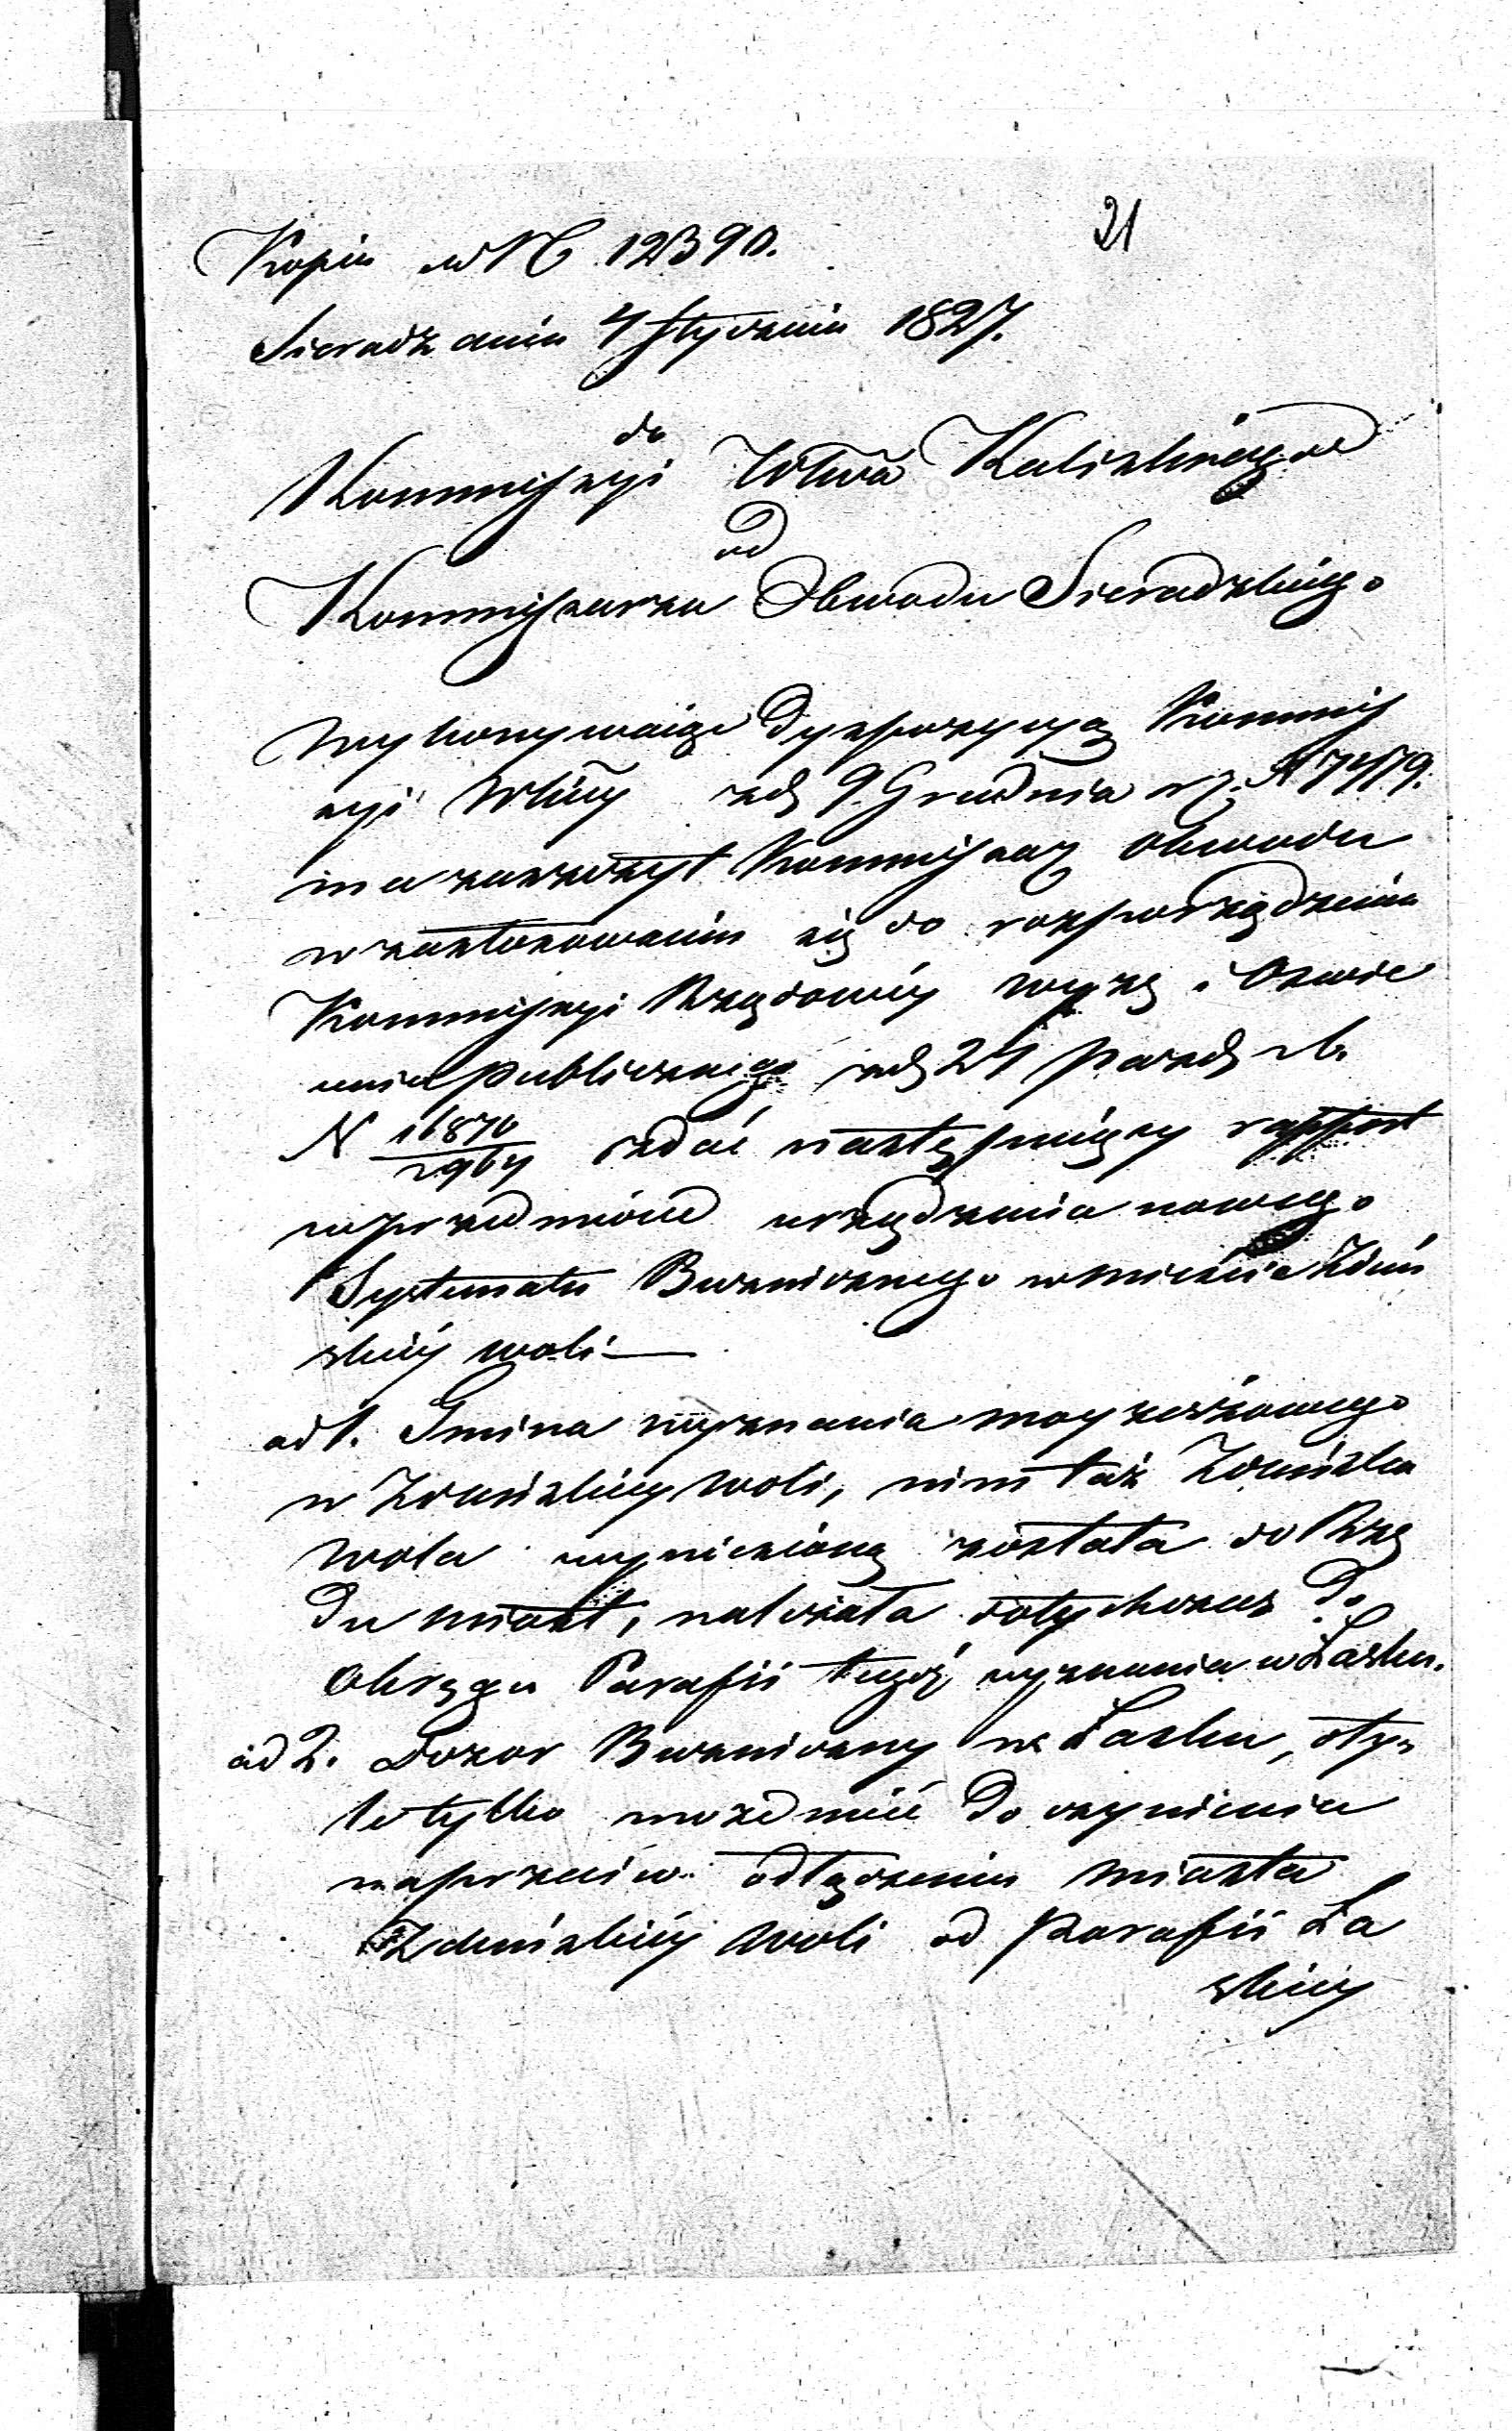 21
Kopia ad N 12390.
Sieradz dnia 4 Stycznia 1827.
do
Kommissyi Wtwa Kaliskiego
od
Kommissarza Obwodu Sieradzkiego
Wykonywaiąc Dyspozycyą Kommis
syi Wkiey zdg 9. Grudnia r. z. N 74179.
ma zaszczyt Kommissarz Obwodu
w zastosowaniu się do rozporządzenia
Kommissyi Rządowey Wyzg i Oświe
cenia publicznego zdg 24 Pazdg r. b.
N 16870/2964 zdać następuiący rapport
w przedmiocie urządzenia nowego
Systematu Bużniczego w mieście Zduń
skiey woli —
ad 1. Gmina wyznania moyżeszowego
w Zduńskiey Woli, nim taż Zduńska
Wola wyniesioną została do Rzę
du miast, należała dotychczas do
Okręgu Parafii tegoż wyznania w Łasku.
ad 2. Dozor Bużniczy w Łasku, o ty
le tylko może mieć do czynienia
naprzeciw odłączeniu miasta
Zduńskiey Woli od Parafii Ła
skiey